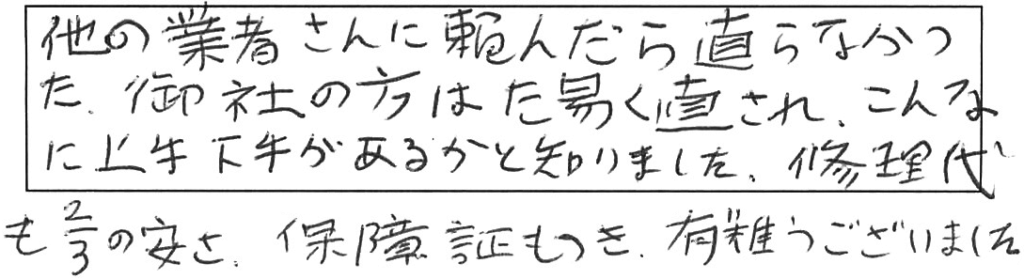 他の業者さんに頼んだら直らなかっ
た、御社の方はた易く直され、こんな
に上手下手があるかと知りました、修理代
も2/3の安さ、保障証もつき、有難うございました